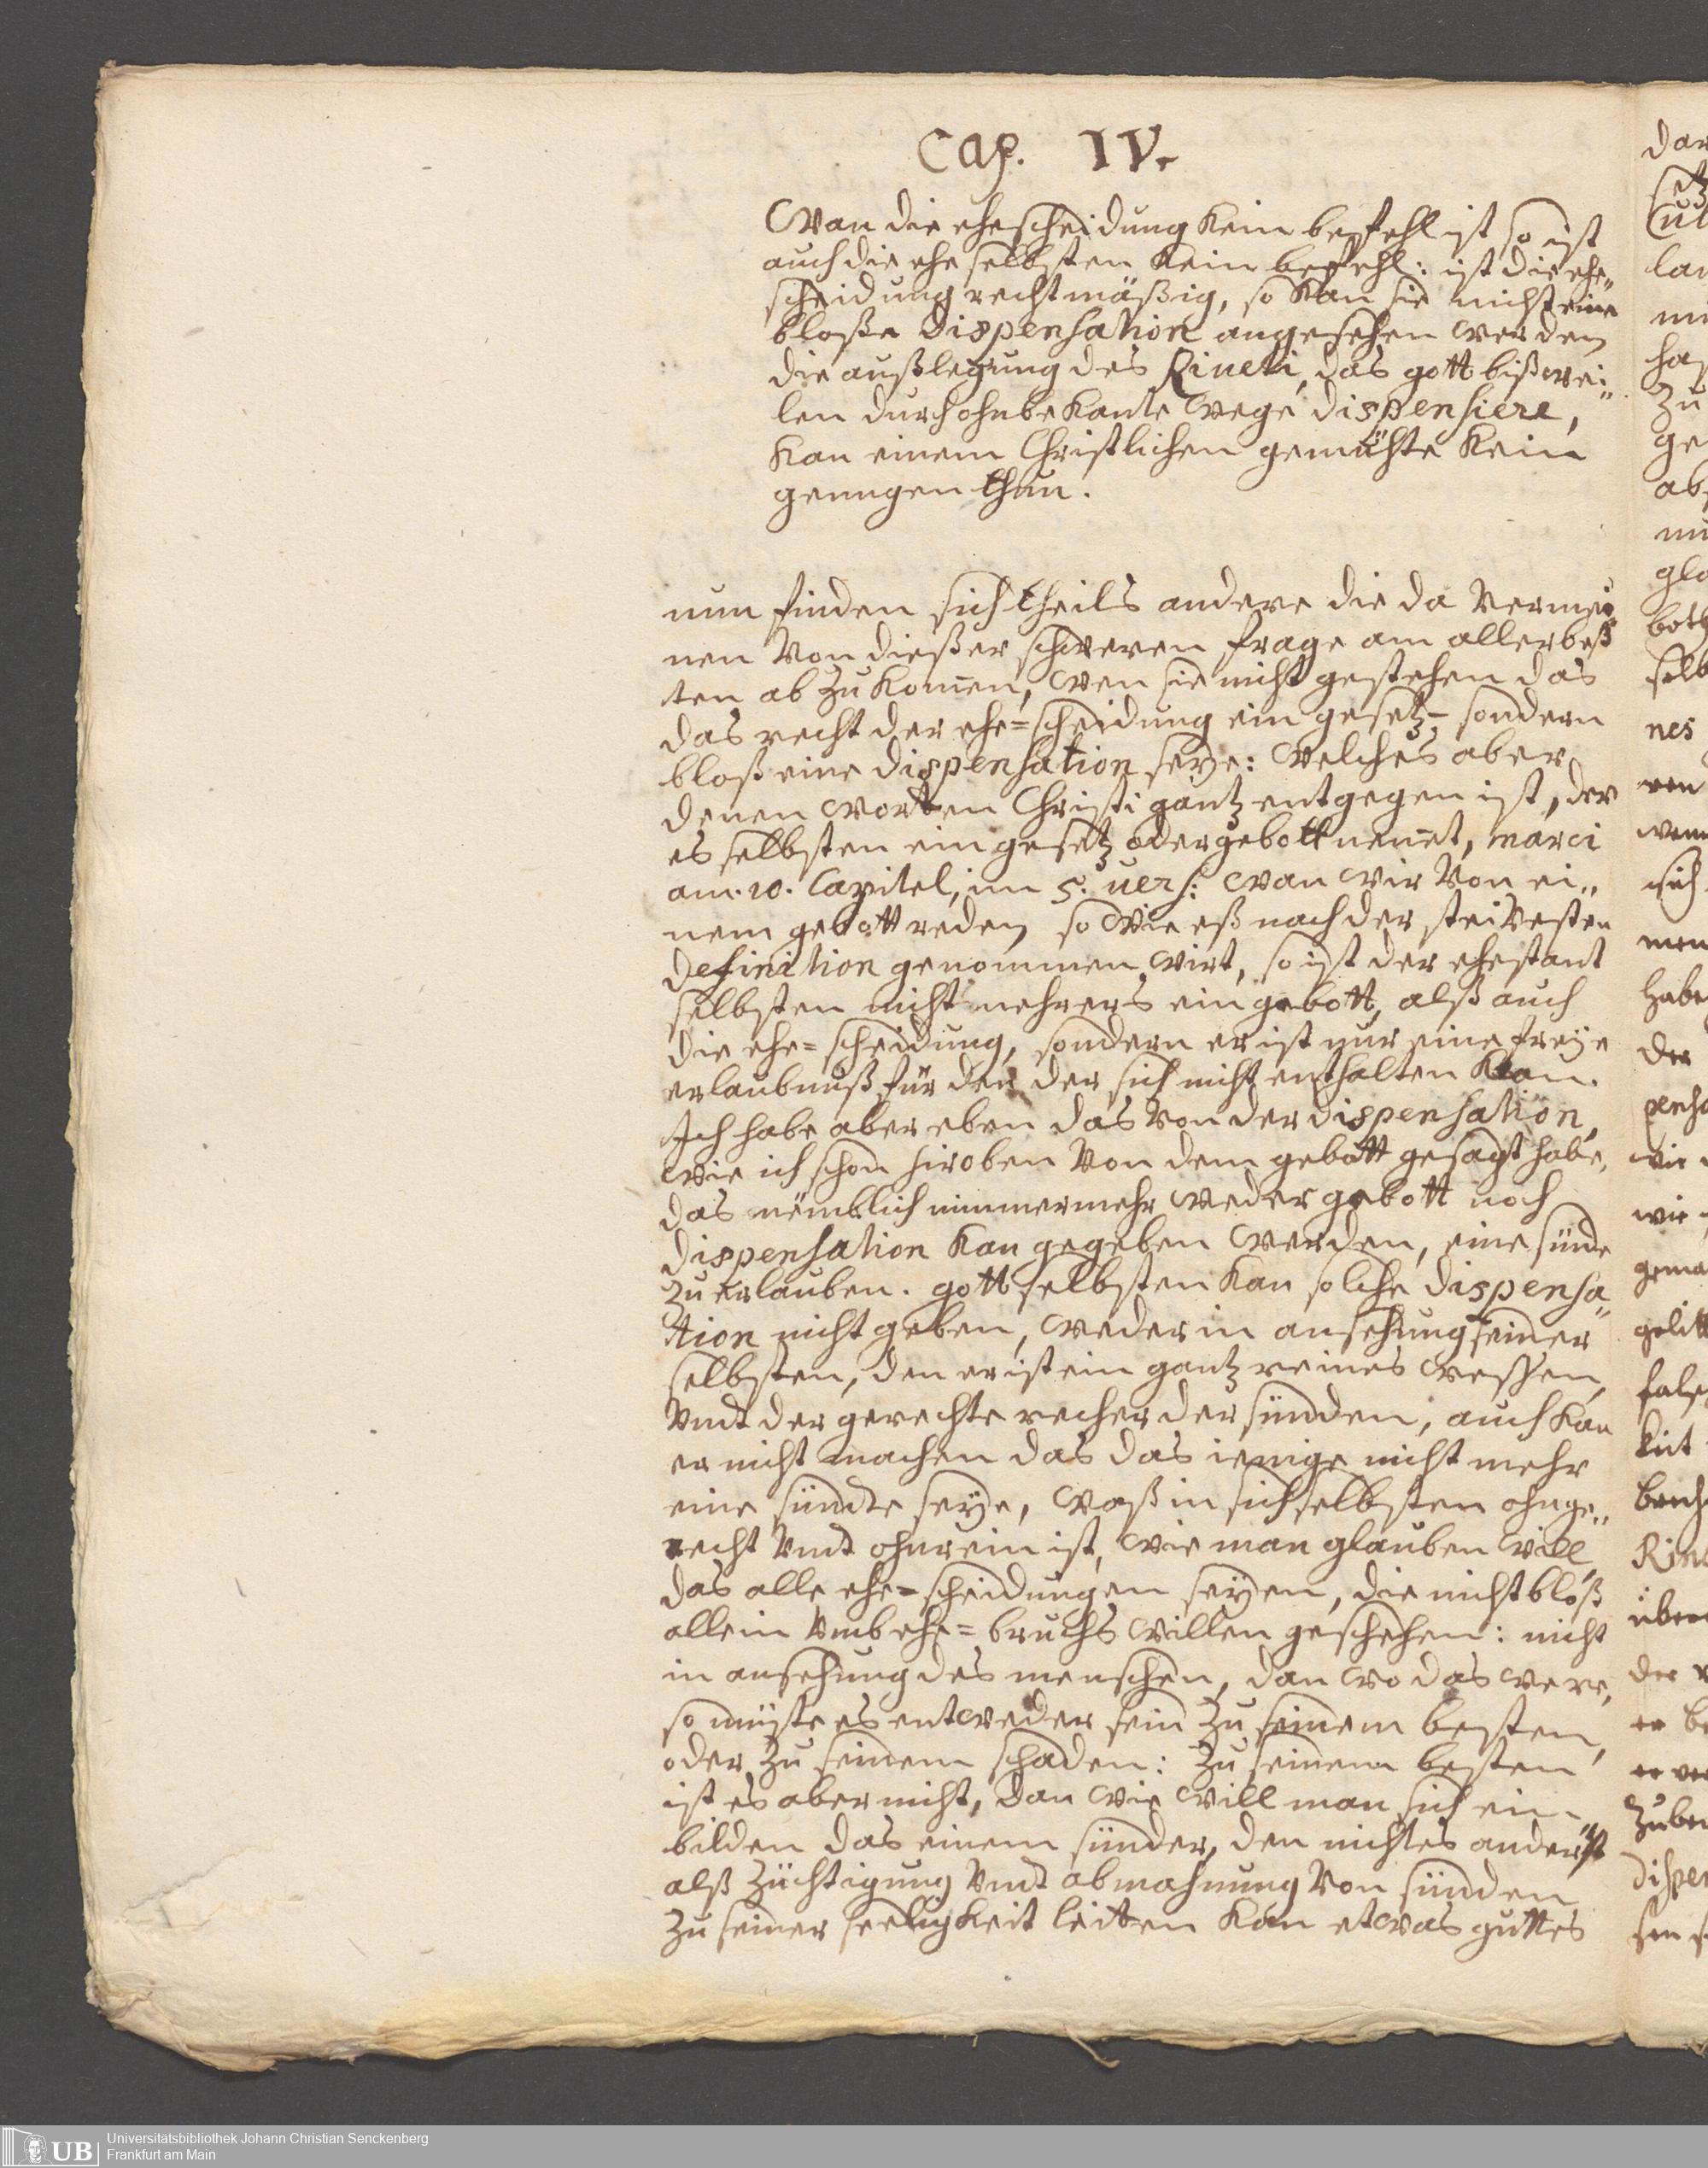 Cap. IV.
Wan die ehescheidung kein befehl ist so ist
auch die ehe selbsten kein befehl: ist die ehe„
scheidung rechtmäßig, so kan sie nicht eine
bloße dispensation angesehen werden
die außlegung des Riueti, das gott bißwei„
len durch ohnbekante wege dispensiere,
kan einem Christlichen gemühte kein
genugen thun.
nun finden sich theils andere die da vermei„
nen von dießer schweren frage am allerbeß
ten ab zu komen, wen sie nicht gestehen das
das recht der ehe=scheidung ein gesetz- sondern
bloß eine dispensation seye: welches aber
denen worten Christi gantz entgegen ist, der
es selbsten ein gesetz oder gebott nennet, marci
am. 10. Capitel, im 5. uers: wan wir von ei„
nem gebott reden so wie eß nach der steivesten
definition genommen wirt, so ist der ehestant
selbsten nicht mehrers ein gebott, alß auch
die ehe=scheidung, sondern er ist nur eine freye
erlaubnuß für den der sich nicht enthalten kan.
Ich habe aber eben das von der dispensation,
wie ich schon hiroben von dem gebott gesagt habe,
das nemblich nimmermehr weder gebott noch
dispensation kan gegeben werden, eine sünde
zu erlauben. gott selbsten kan solche dispensa„
tion nicht geben, weder in ansehung seiner
selbsten, den er ist ein gantz reines wessen,
vndt der gerechte recher der sünden, auch kan
er nicht machen das das ienige nicht mehr
eine sündte seye, waß in sich selbsten ohnge„
recht vndt ohnrein ist, wie man glauben will,
das alle ehe=scheidungen seyen, die nicht bloß
allein vmb ehe=bruchs willen geschehen: nicht
in ansehung des menschen, dan wo das were,
so müste es entweder sein zu seinem besten,
oder zu seinem schaden: zu seinem besten
ist es aber nicht, dan wie will man sich ein„
bilden das einem sünder, den nichtes anderst
alß züchtigung vndt abmahnung von sünden
zu seiner seeligkeit leitten kan etwas guttes
UB Universitätsbibliothek Johann Christian Senckenberg
Frankfurt am Main